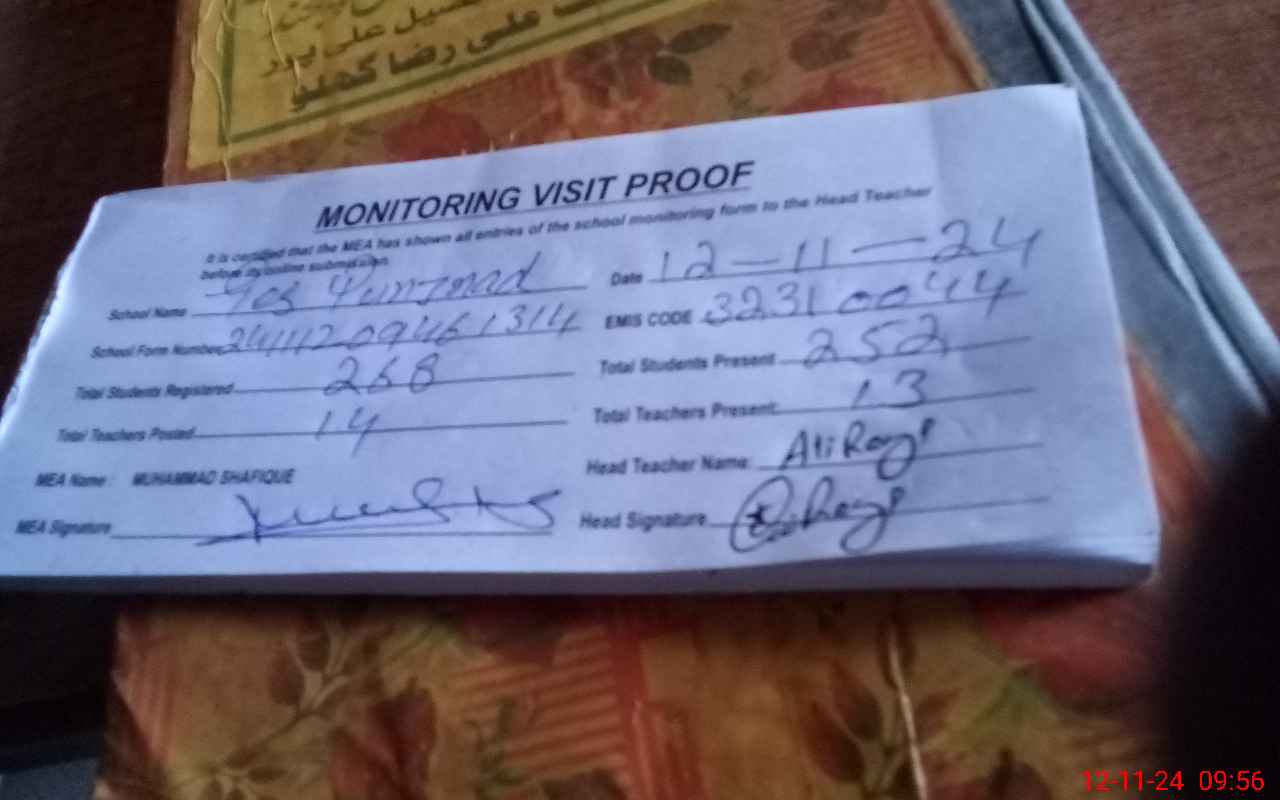 علی پور
علی رضا کھلو
MONITORING VISIT PROOF
It is certified that the MEA has shown all entries of the school monitoring form to the Head Teacher
before my online submission.
School Name Date 12-11-24
School Form Number EMIS CODE 32310044
Total Students Registered 268 Total Students Present 252
Total Teachers Posted 14 Total Teachers Present 13
MEA Name : MUHAMMAD SHAFIQUE Head Teacher Name Ali Raza
MEA Signature Head Signature
12-11-24 09:56